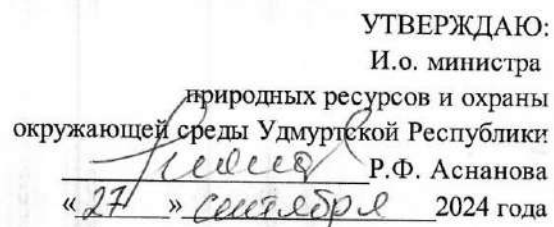 УТВЕРЖДАЮ:
И.о. министра
природных ресурсов и охраны
окружающей среды Удмуртской Республики
Р.Ф. Аснанова
«27» сентября 2024 года